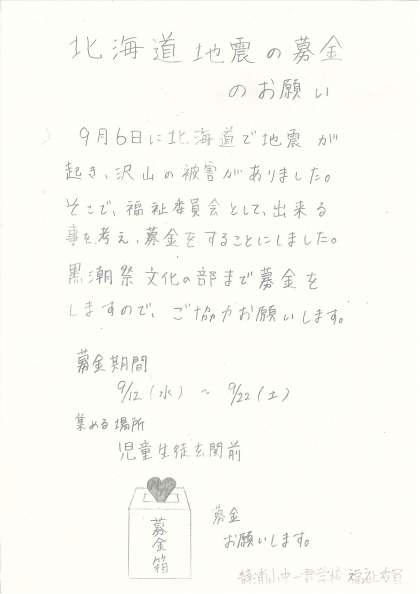 北海道地震の募金
のお願い
9月6日に北海道で地震が
起き、沢山の被害がありました。
そこで、福祉委員会として、出来る
事を考え、募金をすることにしました。
黒潮祭文化の部まで募金を
しますので、ご協力お願いします。
募金期間
9/12(水)～9/22(土)
集める場所
児童生徒玄関前
募金箱
募金
お願いします。
小中一貫学校 福祉委員